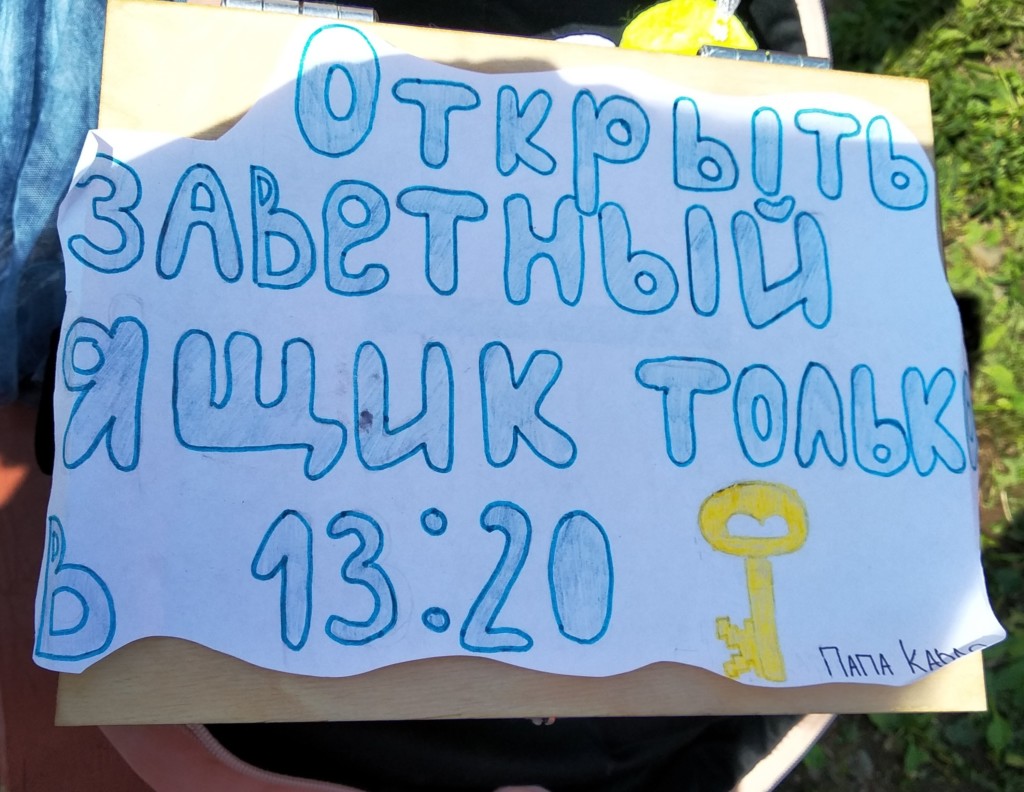 Открыть
заветный
ящик только
в 13:20
Папа Карло